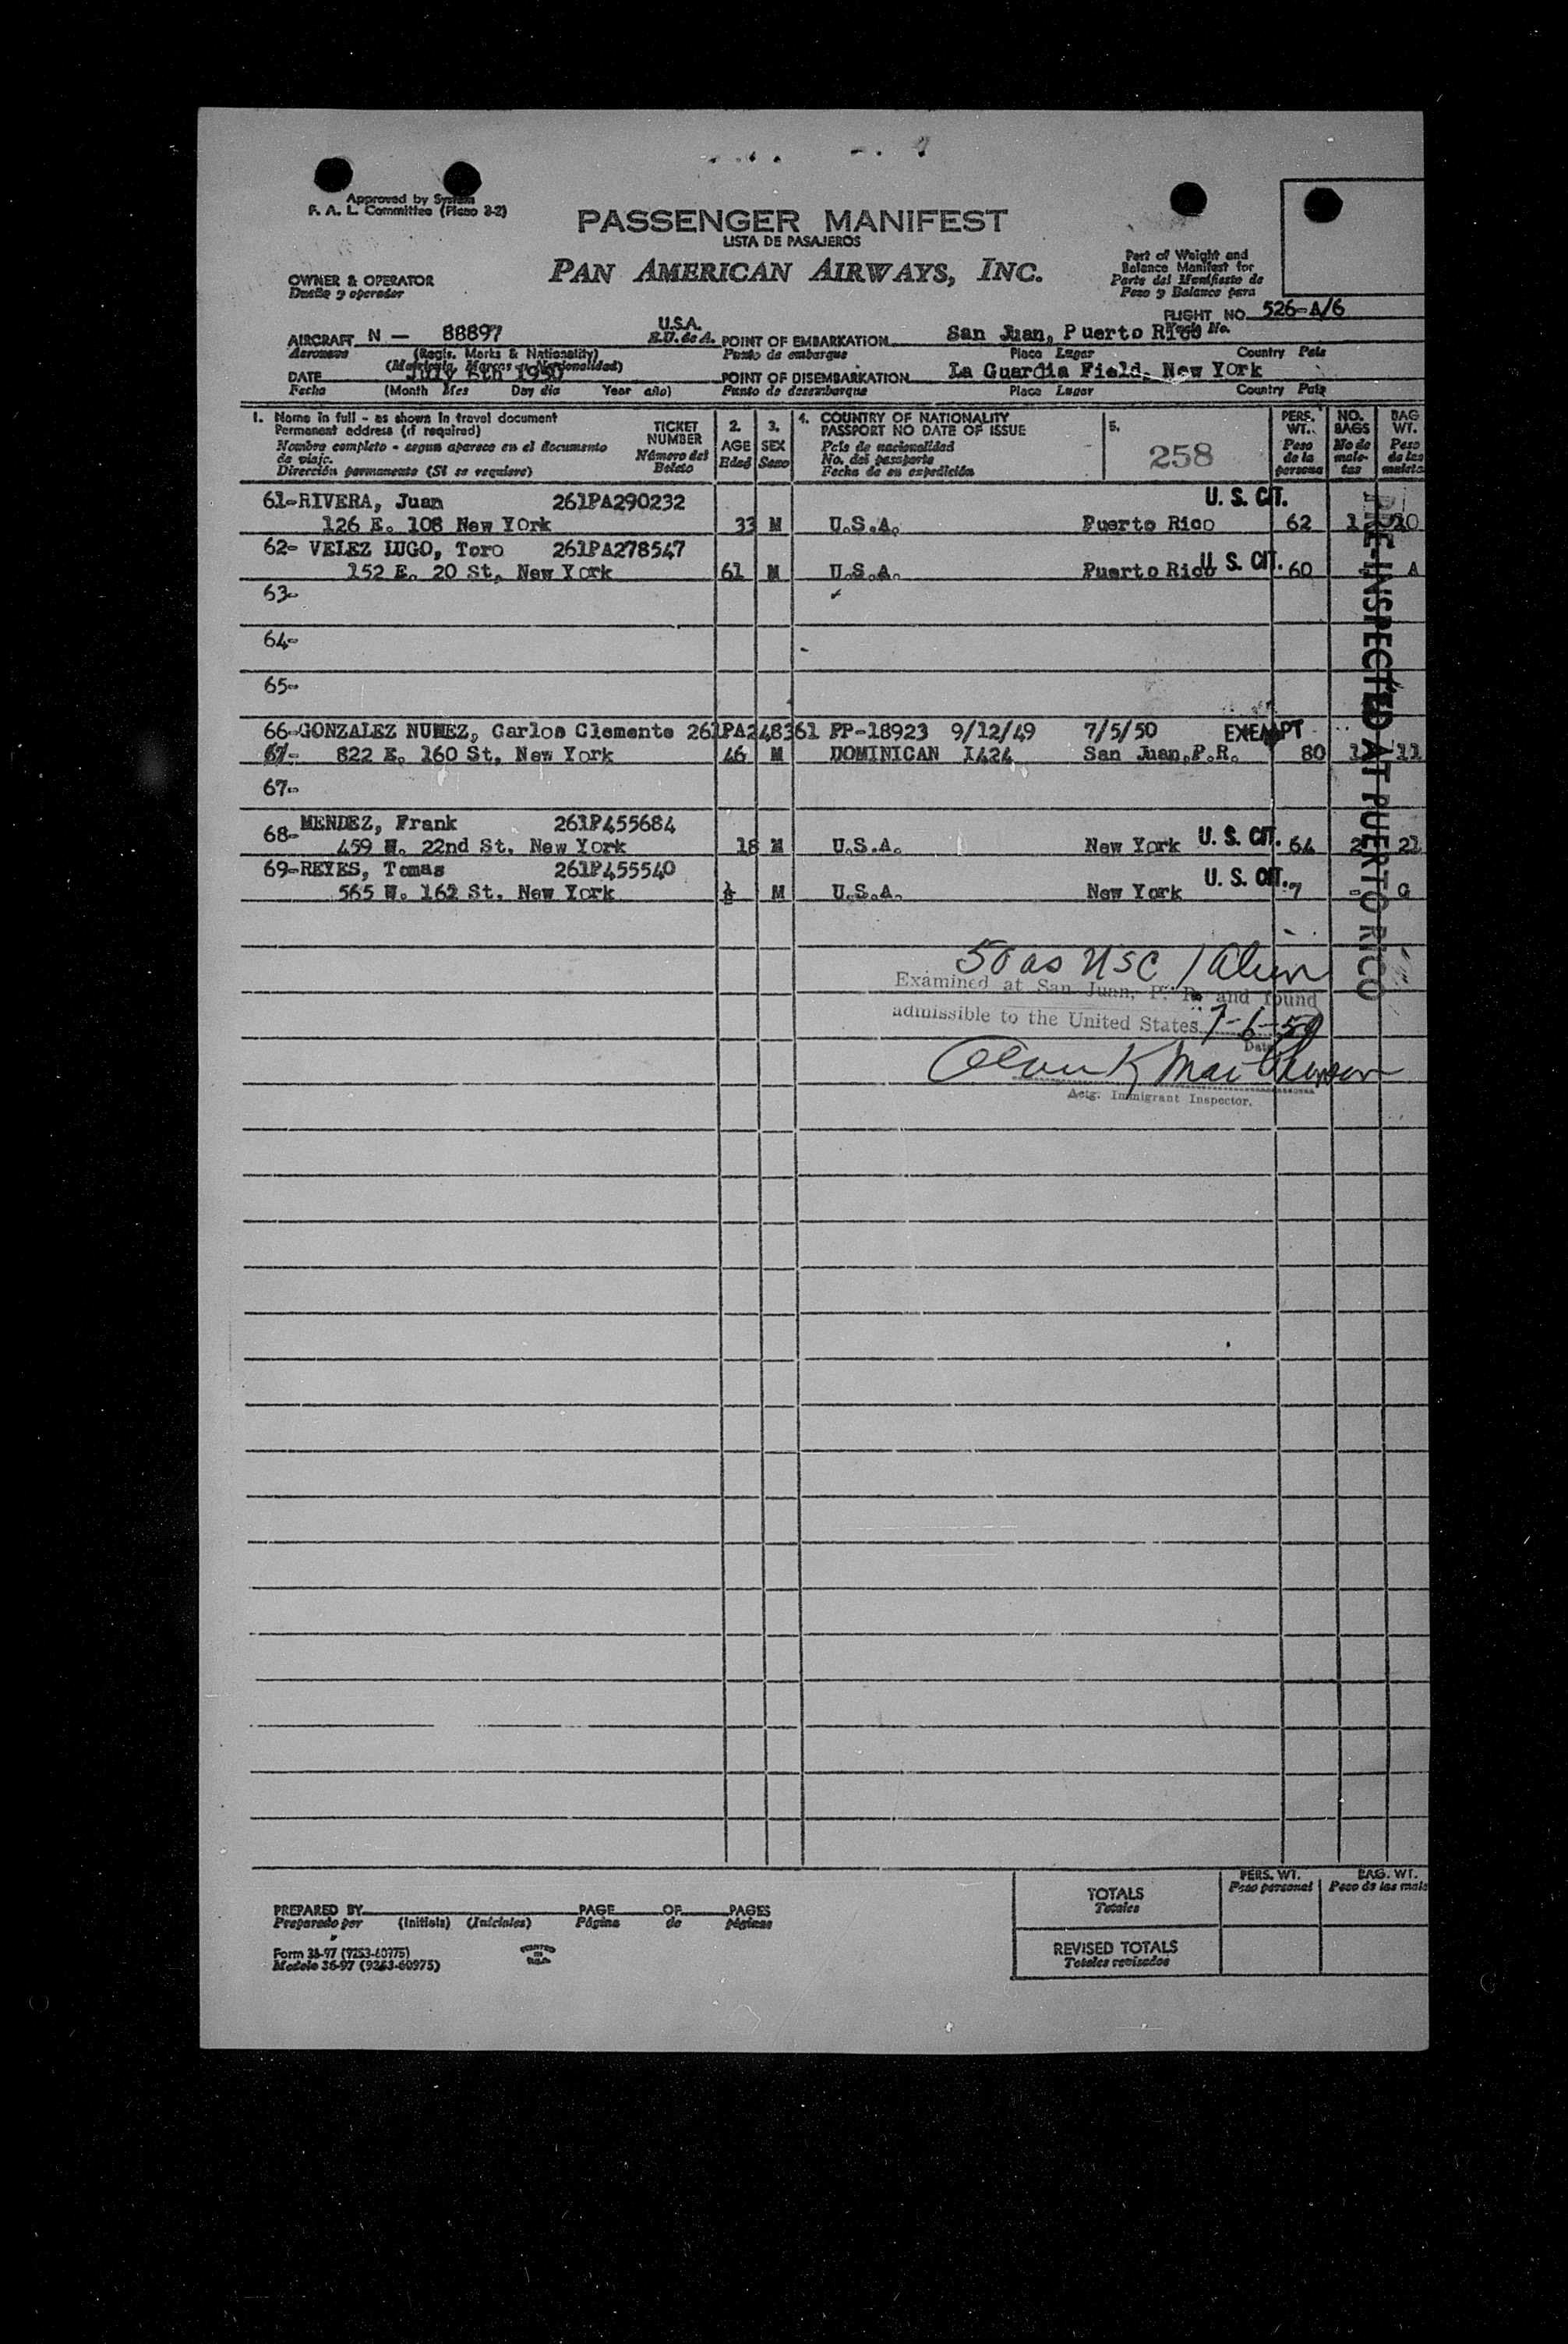 Approved by System
F. A. L. Committee (Plano 3-2)
PASSENGER MANIFEST
LISTA DE PASAJEROS
PAN AMERICAN AIRWAYS, INC.
Part of Weight and
Balance Manifest for
Parte del Manifiesto de
Peso y Balance para
OWNER & OPERATOR
Dueño y operador
FLIGHT NO. 526-A/6
Vuelo No.
AIRCRAFT N — 88897 U.S.A. POINT OF EMBARKATION San Juan, Puerto Rico
Aeronave (Regis. Marks & Nationality) E.U. de A. Punto de embarque Place Lugar Country País
(Matrícula, Marcas y Nacionalidad)
DATE July 6th 1950 POINT OF DISEMBARKATION La Guardia Field, New York
Fecha (Month Mes Day día Year año) Punto de desembarque Place Lugar Country País
1. Name in full - as shown in travel document
Permanent address (if required)
Nombre completo - segun aparece en el documento
de viaje.
Dirección permanente (Si se requiere)
TICKET
NUMBER
Número del
Boleto
2.
AGE
Edad
3.
SEX
Sexo
4. COUNTRY OF NATIONALITY
PASSPORT NO DATE OF ISSUE
País de nacionalidad
No. del pasaporte
Fecha de su expedición
5.
258
PERS.
WT.
Peso
de la
persona
NO.
BAGS
No de
male-
tas
BAG
WT.
Peso
de las
maletas
61-RIVERA, Juan 261PA290232 U. S. CIT.
126 E. 108 New York 33 M U.S.A. Puerto Rico 62 1 10
62- VELEZ LUGO, Toro 261PA278547
152 E. 20 St. New York 61 M U.S.A. Puerto Rico U. S. CIT. 60 - A
63-
64-
65-
66-GONZALEZ NUNEZ, Carlos Clemente 261PA248361 PP-18923 9/12/49 7/5/50 EXEMPT
67- 822 E. 160 St. New York 46 M DOMINICAN I424 San Juan,P.R. 80 1 11
67-
68-MENDEZ, Frank 261P455684
459 W. 22nd St. New York 18 M U.S.A. New York U. S. CIT. 64 2 21
69-REYES, Tomas 261P455540 U. S. CIT.
565 W. 162 St. New York M U.S.A. New York 7 - G
PRE-INSPECTED AT PUERTO RICO
50 as USC 1 Alien
Examined at San Juan, P. R. and found
admissible to the United States 7-6-50
Date
Actg. Immigrant Inspector.
PERS. WT.
Peso personal
BAG. WT.
Peso de las male
TOTALS
Totales
REVISED TOTALS
Totales revisados
PREPARED BY PAGE OF PAGES
Preparado por (Initials) (Iniciales) Página de páginas
Form 36-97 (9253-60975)
Modelo 36-97 (9253-60975)
PRINTED
IN
U.S.A.